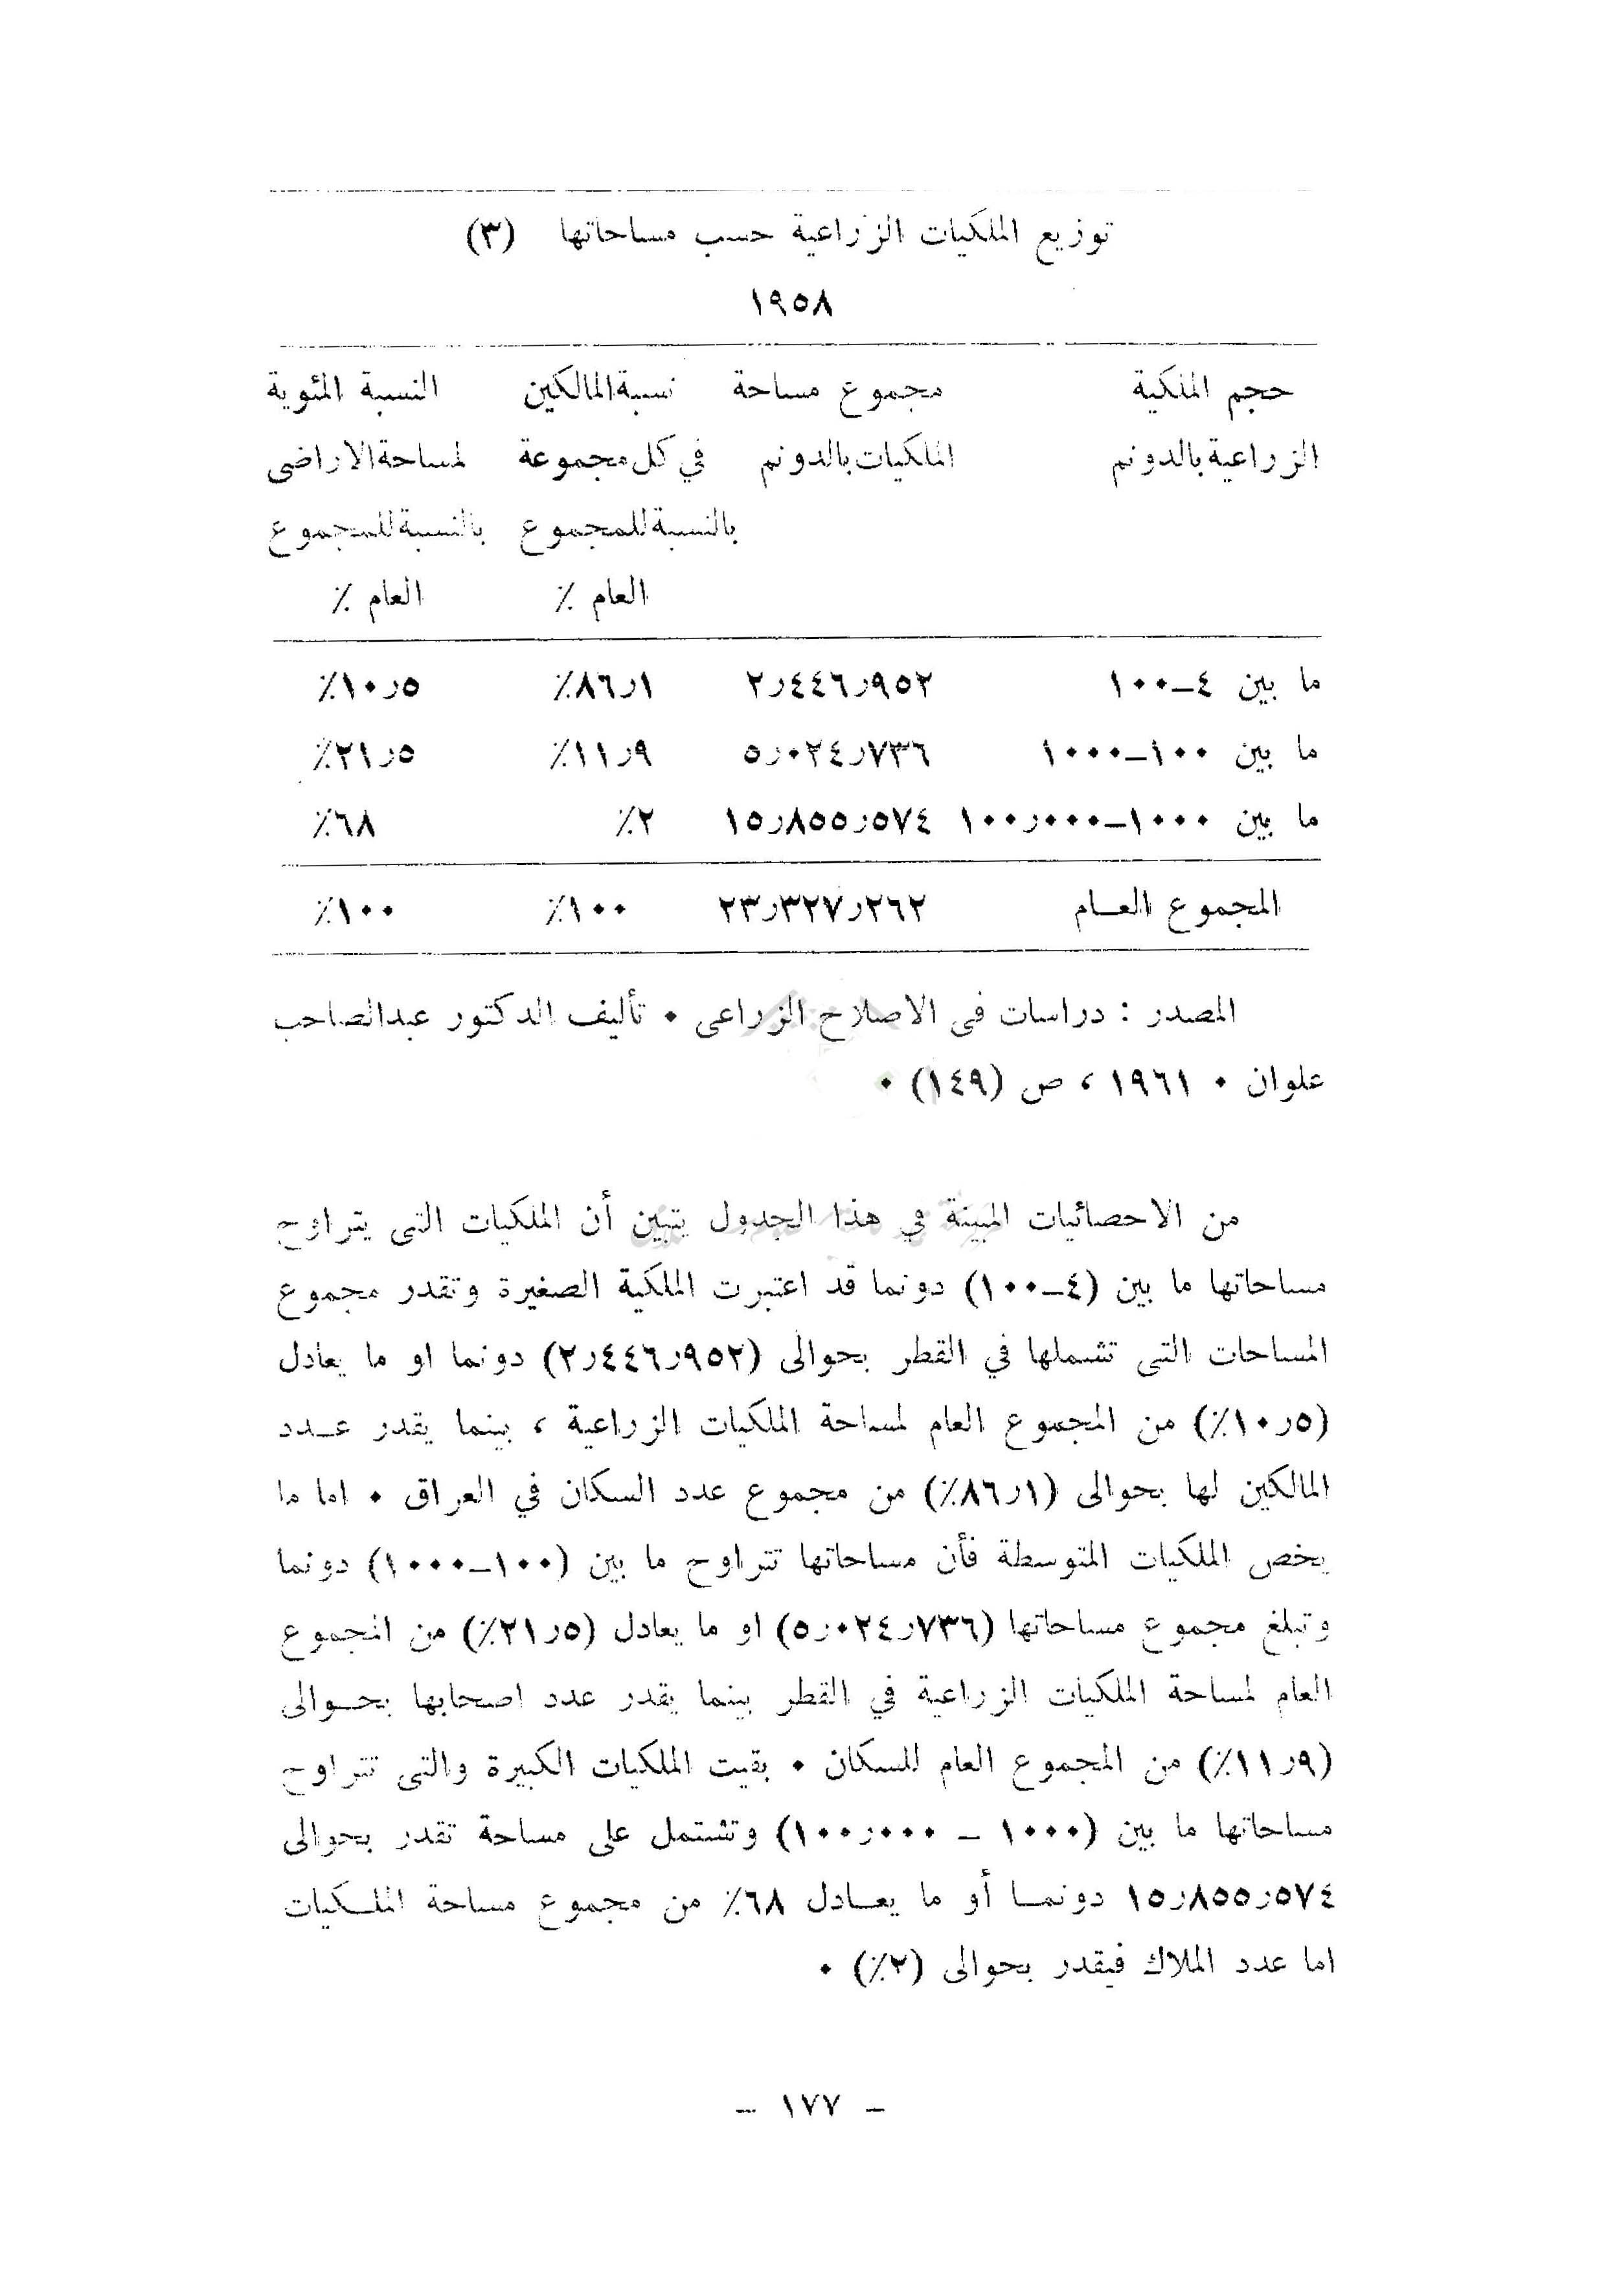 توزيع الملكيات الزراعية حسب مساحاتها (٣)
١٩٥٨
حجم الملكية مجموع مساحة نسبة المالكين النسبة المئوية
الزراعية بالدونم الملكيات بالدونم في كل مجموعة لمساحة الاراضى
بالنسبة للمجموع بالنسبة للمجموع
العام ٪ العام ٪
ما بين ٤ــ١٠٠ ٢ر٤٤٦ر٩٥٢ ٨٦ر١٪ ١٠ر٥٪
ما بين ١٠٠ــ١٠٠٠ ٥ر٠٢٤ر٧٣٦ ١١ر٩٪ ٢١ر٥٪
ما بين ١٠٠٠ــ١٠٠ر٠٠٠ ١٥ر٨٥٥ر٥٧٤ ٢٪ ٦٨٪
المجموع العـام ٢٣ر٣٢٧ر٢٦٢ ١٠٠٪ ١٠٠٪
المصدر : دراسات فى الاصلاح الزراعى ٠ تأليف الدكتور عبدالصاحب
علوان ٠ ١٩٦١ ، ص (١٤٩) ٠
من الاحصائيات المبينة في هذا الجدول يتبين أن الملكيات التى يتراوح
مساحاتها ما بين (٤ــ١٠٠) دونما قد اعتبرت الملكية الصغيرة وتقدر مجموع
المساحات التى تشملها في القطر بحوالى (٢ر٤٤٦ر٩٥٢) دونما او ما يعادل
(١٠ر٥٪) من المجموع العام لمساحة الملكيات الزراعية ، بينما يقدر عـدد
المالكين لها بحوالى (٨٦ر١٪) من مجموع عدد السكان في العراق ٠ اما ما
يخص الملكيات المتوسطة فأن مساحاتها تتراوح ما بين (١٠٠ــ١٠٠٠) دونما
وتبلغ مجموع مساحاتها (٥ر٠٢٤ر٧٣٦) او ما يعادل (٢١ر٥٪) من المجموع
العام لمساحة الملكيات الزراعية في القطر بينما يقدر عدد اصحابها بحـوالى
(١١ر٩٪) من المجموع العام للسكان ٠ بقيت الملكيات الكبيرة والتى تتراوح
مساحاتها ما بين (١٠٠٠ ــ ١٠٠ر٠٠٠) وتشتمل على مساحة تقدر بحوالى
١٥ر٨٥٥ر٥٧٤ دونمـا أو ما يعـادل ٦٨٪ من مجموع مساحة الملـكيات
اما عدد الملاك فيقدر بحوالى (٢٪) ٠
ــ ١٧٧ ــ